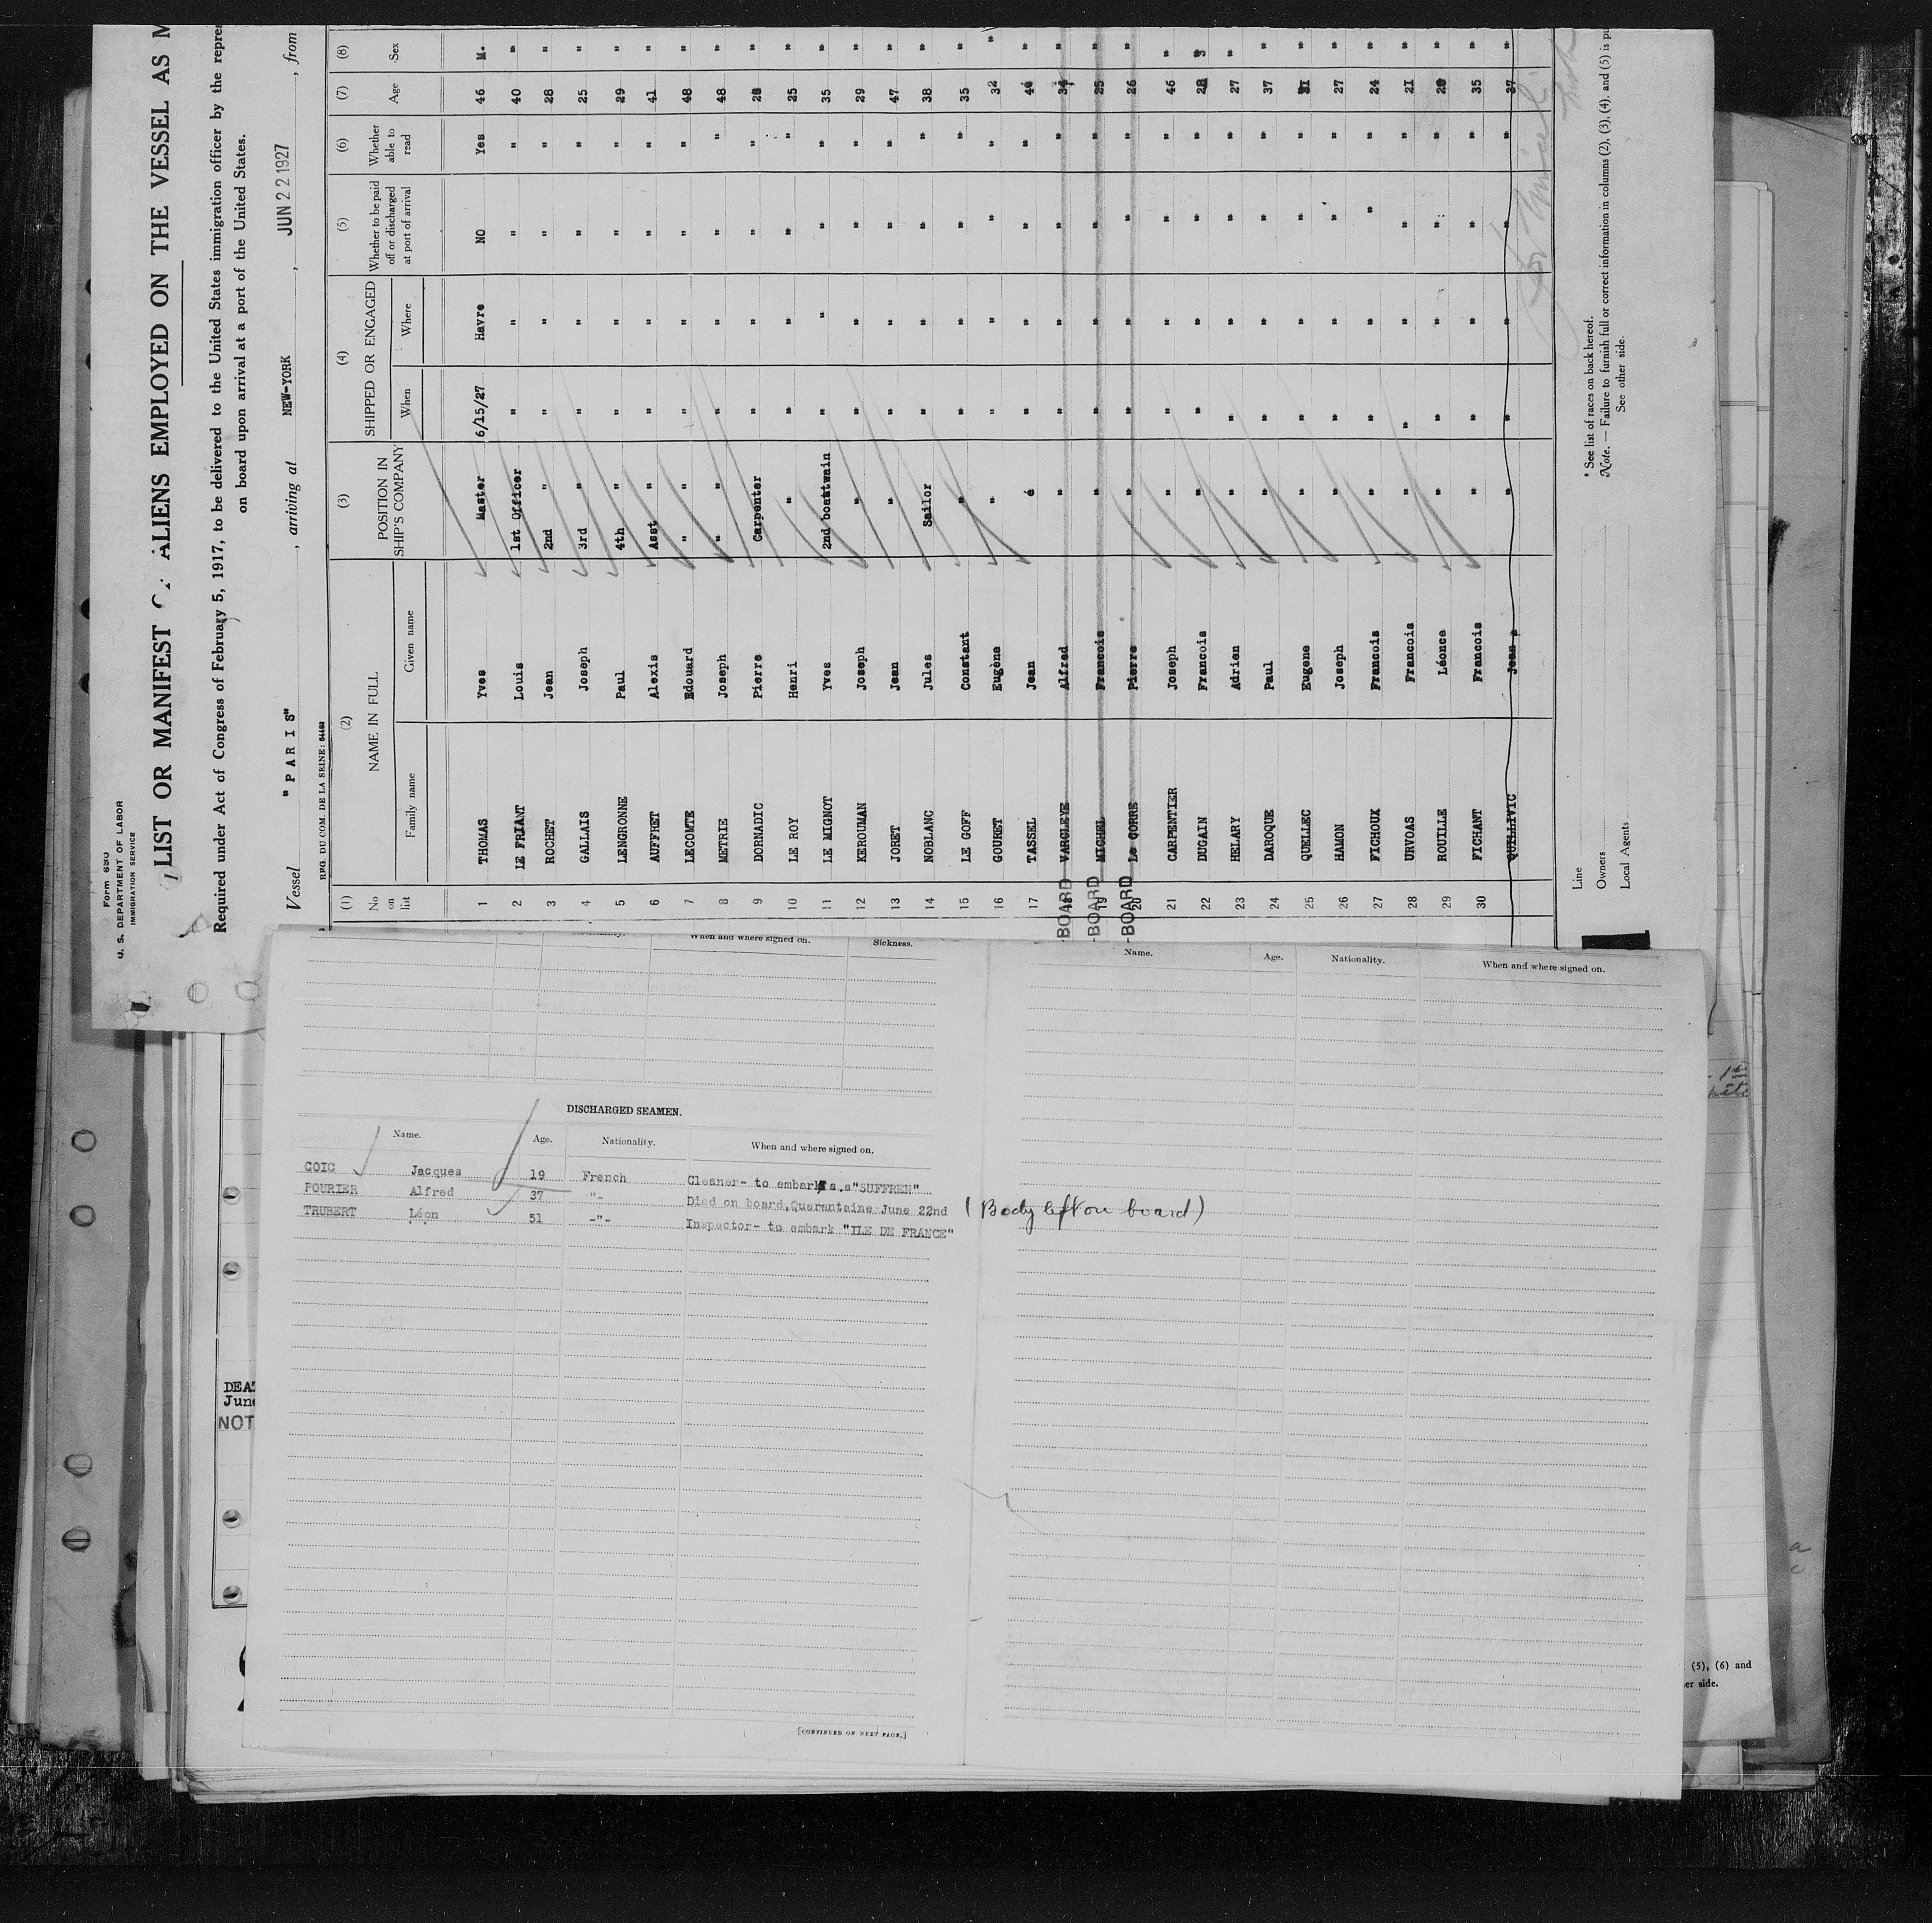 Form 680
U. S. DEPARTMENT OF LABOR
IMMIGRATION SERVICE
LIST OR MANIFEST ALIENS EMPLOYED ON THE VESSEL AS M
Required under Act of Congress of February 5, 1917, to be delivered to the United States immigration officer by the repre
on board upon arrival at a port of the United States.
Vessel "PARIS", arriving at NEW-YORK, JUN 22 1927, from
REG. DU COM. DE LA SEINE:
(1) (2) (3) (4) (5) (6) (7) (8)
No on list NAME IN FULL POSITION IN SHIP'S COMPANY SHIPPED OR ENGAGED Whether to be paid off or discharged at port of arrival Whether able to read Age Sex
Family name Given name When Where
1 THOMAS Yves Master 6/15/27 Havre NO Yes 46 M.
2 LE FRIANT Louis 1st Officer " " " " 40 "
3 ROCHET Jean 2nd " " " " " 28 "
4 GALLAIS Joseph 3rd " " " " " 25 "
5 LENGRONNE Paul 4th " " " " " 29 "
6 AUFFRET Alexis Asst " " " " " 41 "
7 LECOMTE Edouard " " " " " " 48 "
8 METRIE Joseph " " " " " " 48 "
9 DORNADIC Pierre Carpenter " " " " 28 "
10 LE ROY Henri " " " " " 25 "
11 LE MIGNOT Yves 2nd boattwain " " " " 35 "
12 KEROUMAN Joseph " " " " " 29 "
13 JORET Jean " " " " " 47 "
14 NOBLANC Jules Sailor " " " " 38 "
15 LE GOFF Constant " " " " " 35 "
16 GOURET Eugène " " " " " 32 "
17 TASSEL Jean é " " " " "
18 VARGLEYE Alfred " " " " " 34 "
-BOARD
19 MICHEL Francois " " " " " 25 "
-BOARD
20 Le CORRE Pierre " " " " " 26 "
-BOARD
21 CARPENTIER Joseph " " " " " 46 "
22 DUGAIN Francois " " " " " 28 "
23 HELARY Adrien " " " " " 27 "
24 DAROQUE Paul " " " " " 37 "
25 QUELLEC Eugene " " " " " "
26 HAMON Joseph " " " " " 27 "
27 FICHOUX Francois " " " " " 24 "
28 URVOAS Francois " " " " " 21 "
29 ROUILLE Léonce " " " " " "
30 FICHANT Francois " " " " " 35 "
QUILLIVIC Jean " " " " " 37 "
Line
Owners
Local Agents
* See list of races on back hereof.
Note. — Failure to furnish full or correct information in columns (2), (3), (4), and (5) is pu
See other side.
When and where signed on. Sickness.
Name. Age. Nationality. When and where signed on.
DISCHARGED SEAMEN.
Name. Age. Nationality. When and where signed on.
COIC Jacques 19 French Cleaner- to embark s.s"SUFFREN"
POURIER Alfred 37 "- Died on board,Quarantaine June 22nd (Body left on board)
TRUBERT Léon 51 -"- Inspector- to embark "ILE DE FRANCE"
[CONTINUED ON NEXT PAGE.]
DEA
June
NOT
(5), (6) and
er side.